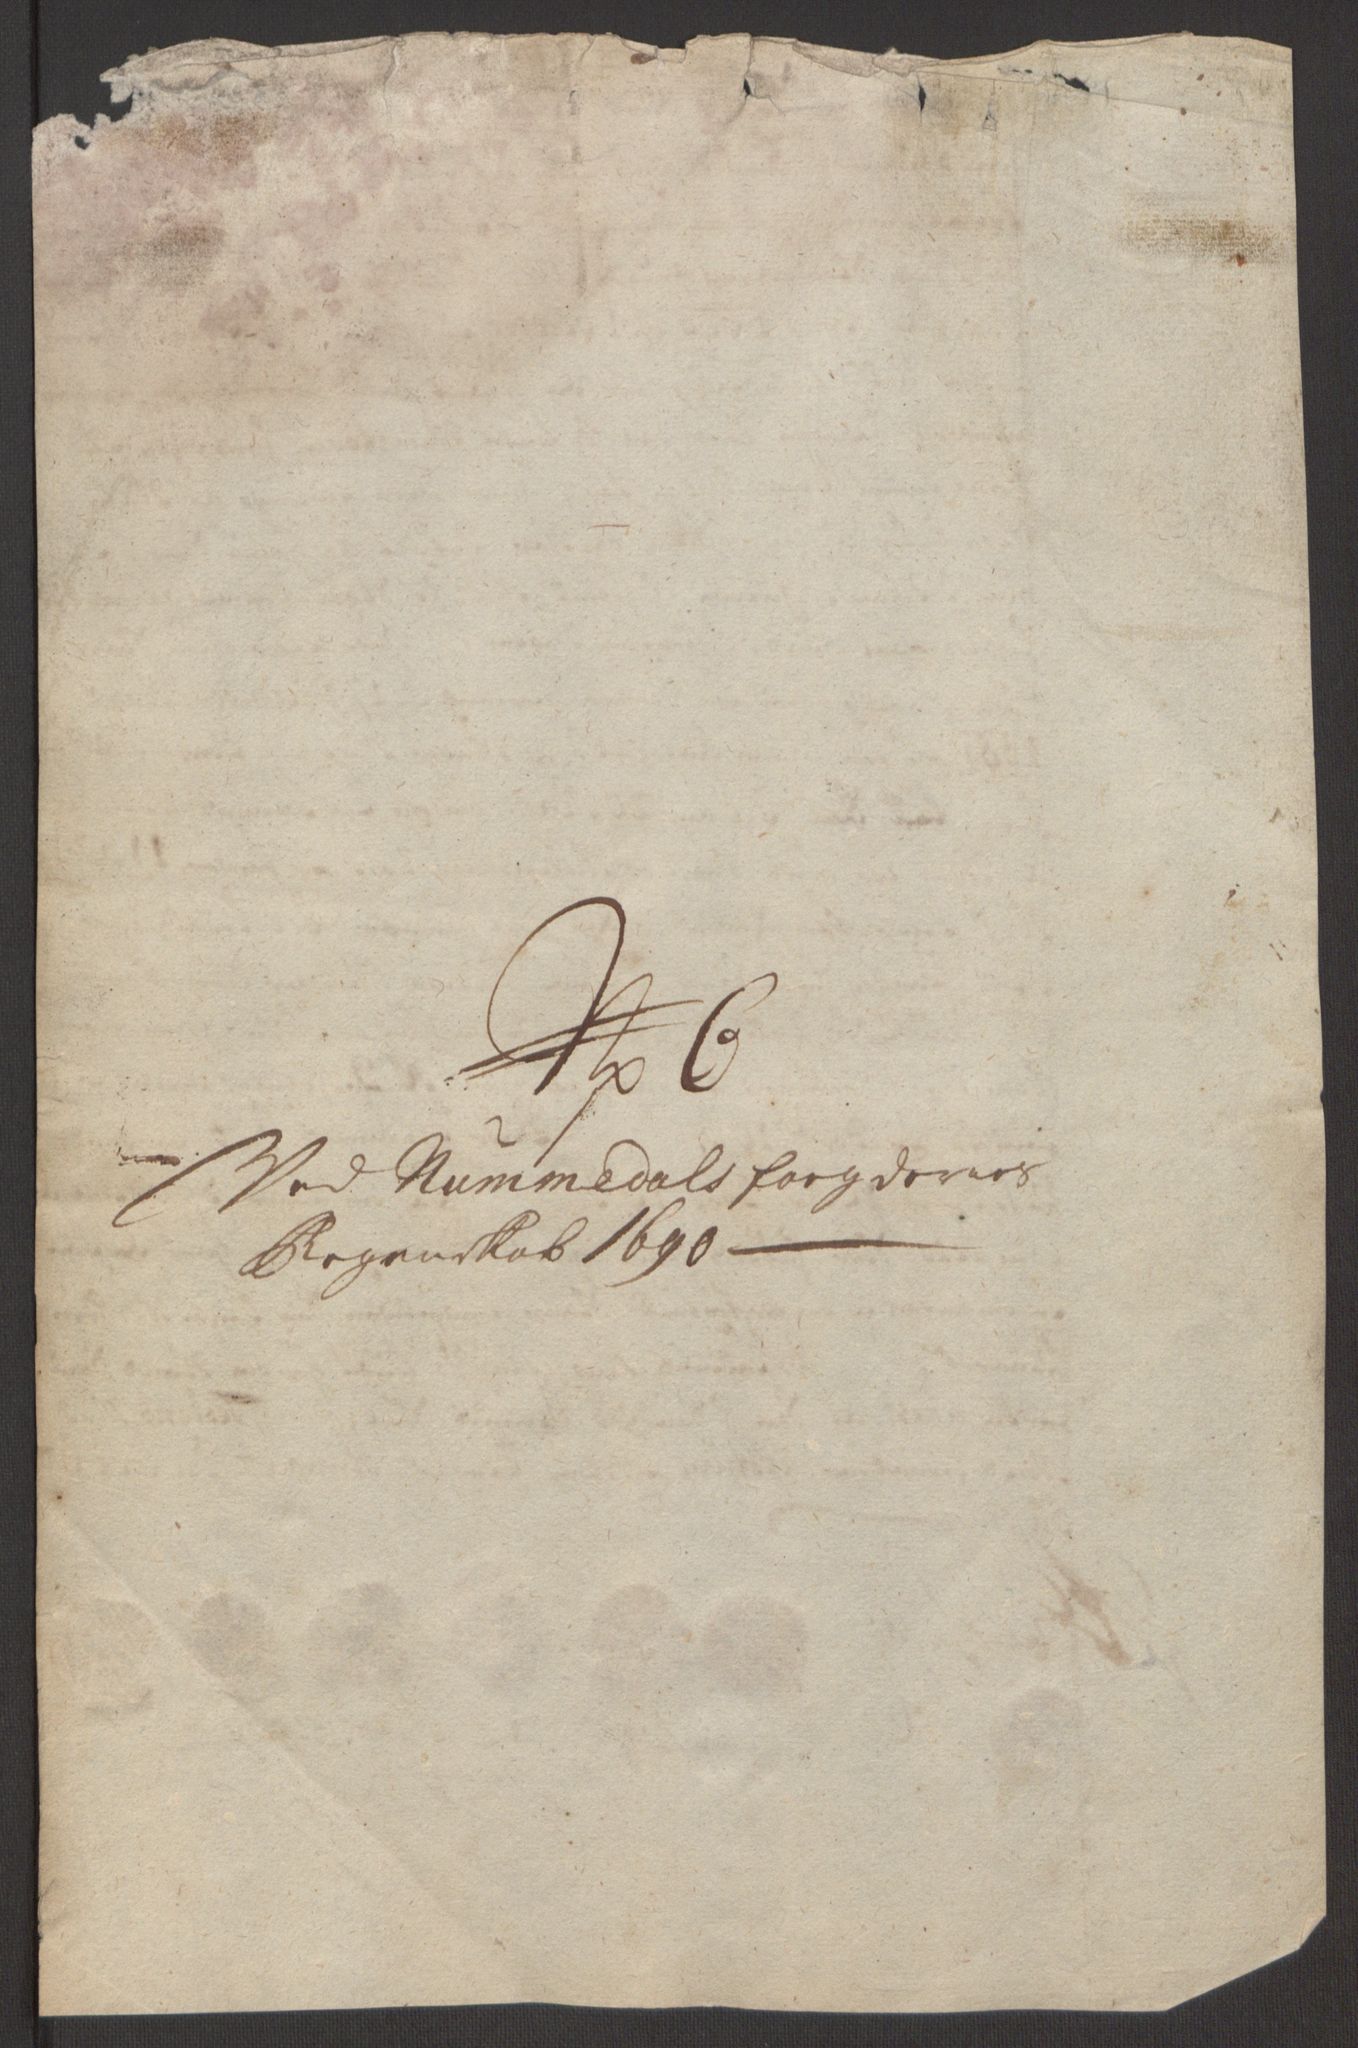 No 6
Ved Nummedals fogderies
Regenskab 1690